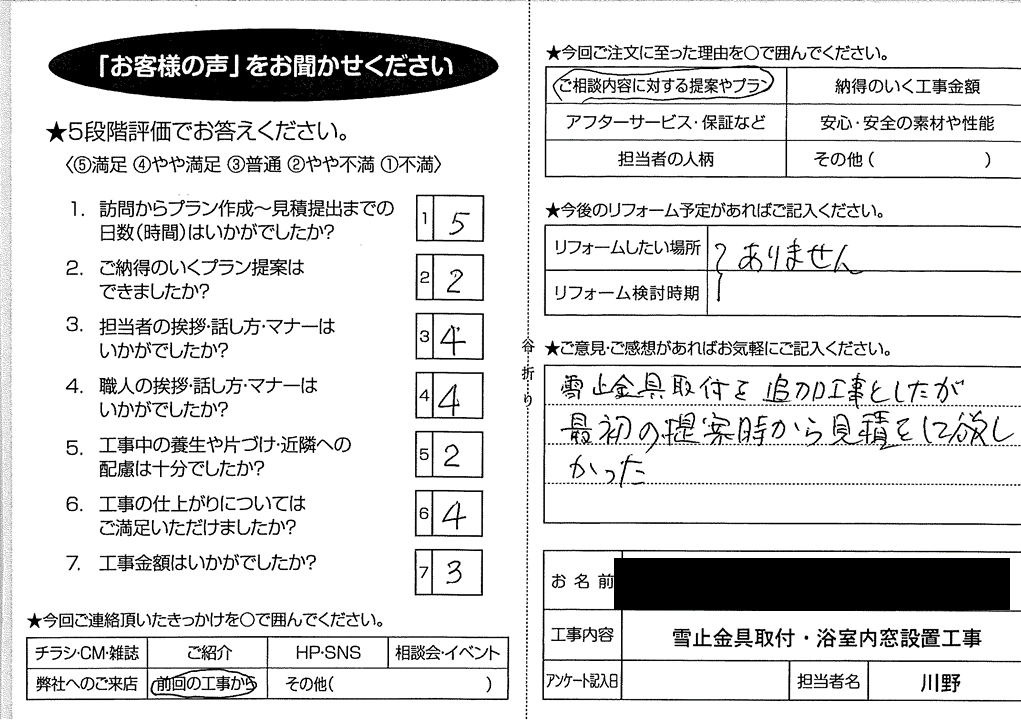 「お客様の声」をお聞かせください
★5段階評価でお答えください。
〈⑤満足 ④やや満足 ③普通 ②やや不満 ①不満〉
1. 訪問からプラン作成～見積提出までの
日数(時間)はいかがでしたか?
1 5
2. ご納得のいくプラン提案は
できましたか?
2 2
3. 担当者の挨拶・話し方・マナーは
いかがでしたか?
3 4
4. 職人の挨拶・話し方・マナーは
いかがでしたか?
4 4
5. 工事中の養生や片づけ・近隣への
配慮は十分でしたか?
5 2
6. 工事の仕上がりについては
ご満足いただけましたか?
6 4
7. 工事金額はいかがでしたか?
7 3
★今回ご連絡頂いたきっかけを〇で囲んでください。
チラシ・CM・雑誌 ご紹介 HP・SNS 相談会・イベント
弊社へのご来店 前回の工事から その他( )
谷折り
★今回ご注文に至った理由を〇で囲んでください。
ご相談内容に対する提案やプラン 納得のいく工事金額
アフターサービス・保証など 安心・安全の素材や性能
担当者の人柄 その他( )
★今後のリフォーム予定があればご記入ください。
リフォームしたい場所 ありません
リフォーム検討時期
★ご意見・ご感想があればお気軽にご記入ください。
雪止金具取付を追加工事としたが
最初の提案時から見積をして欲し
かった
お名前
工事内容 雪止金具取付・浴室内窓設置工事
アンケート記入日 担当者名 川野